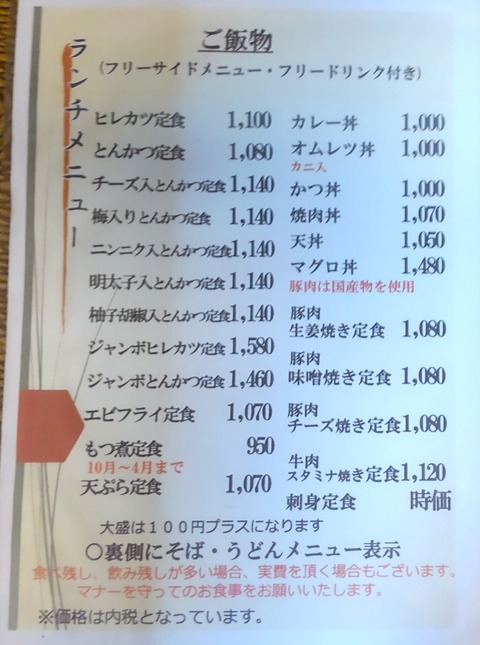 ランチメニュー
ご飯物
(フリーサイドメニュー・フリードリンク付き)
ヒレカツ定食 1,100
とんかつ定食 1,080
チーズ入とんかつ定食 1,140
梅入りとんかつ定食 1,140
ニンニク入とんかつ定食 1,140
明太子入とんかつ定食 1,140
柚子胡椒入とんかつ定食 1,140
ジャンボヒレカツ定食 1,580
ジャンボとんかつ定食 1,460
エビフライ定食 1,070
もつ煮定食 950
10月～4月まで
天ぷら定食 1,070
カレー丼 1,000
オムレツ丼 1,000
カニ入
かつ丼 1,000
焼肉丼 1,070
天丼 1,050
マグロ丼 1,480
豚肉は国産物を使用
豚肉
生姜焼き定食 1,080
豚肉
味噌焼き定食 1,080
豚肉
チーズ焼き定食 1,080
牛肉
スタミナ焼き定食 1,120
刺身定食 時価
大盛は１００円プラスになります
○裏側にそば・うどんメニュー表示
食べ残し、飲み残しが多い場合、実費を頂く場合もございます。
マナーを守ってのお食事をお願いいたします。
※価格は内税となっています。